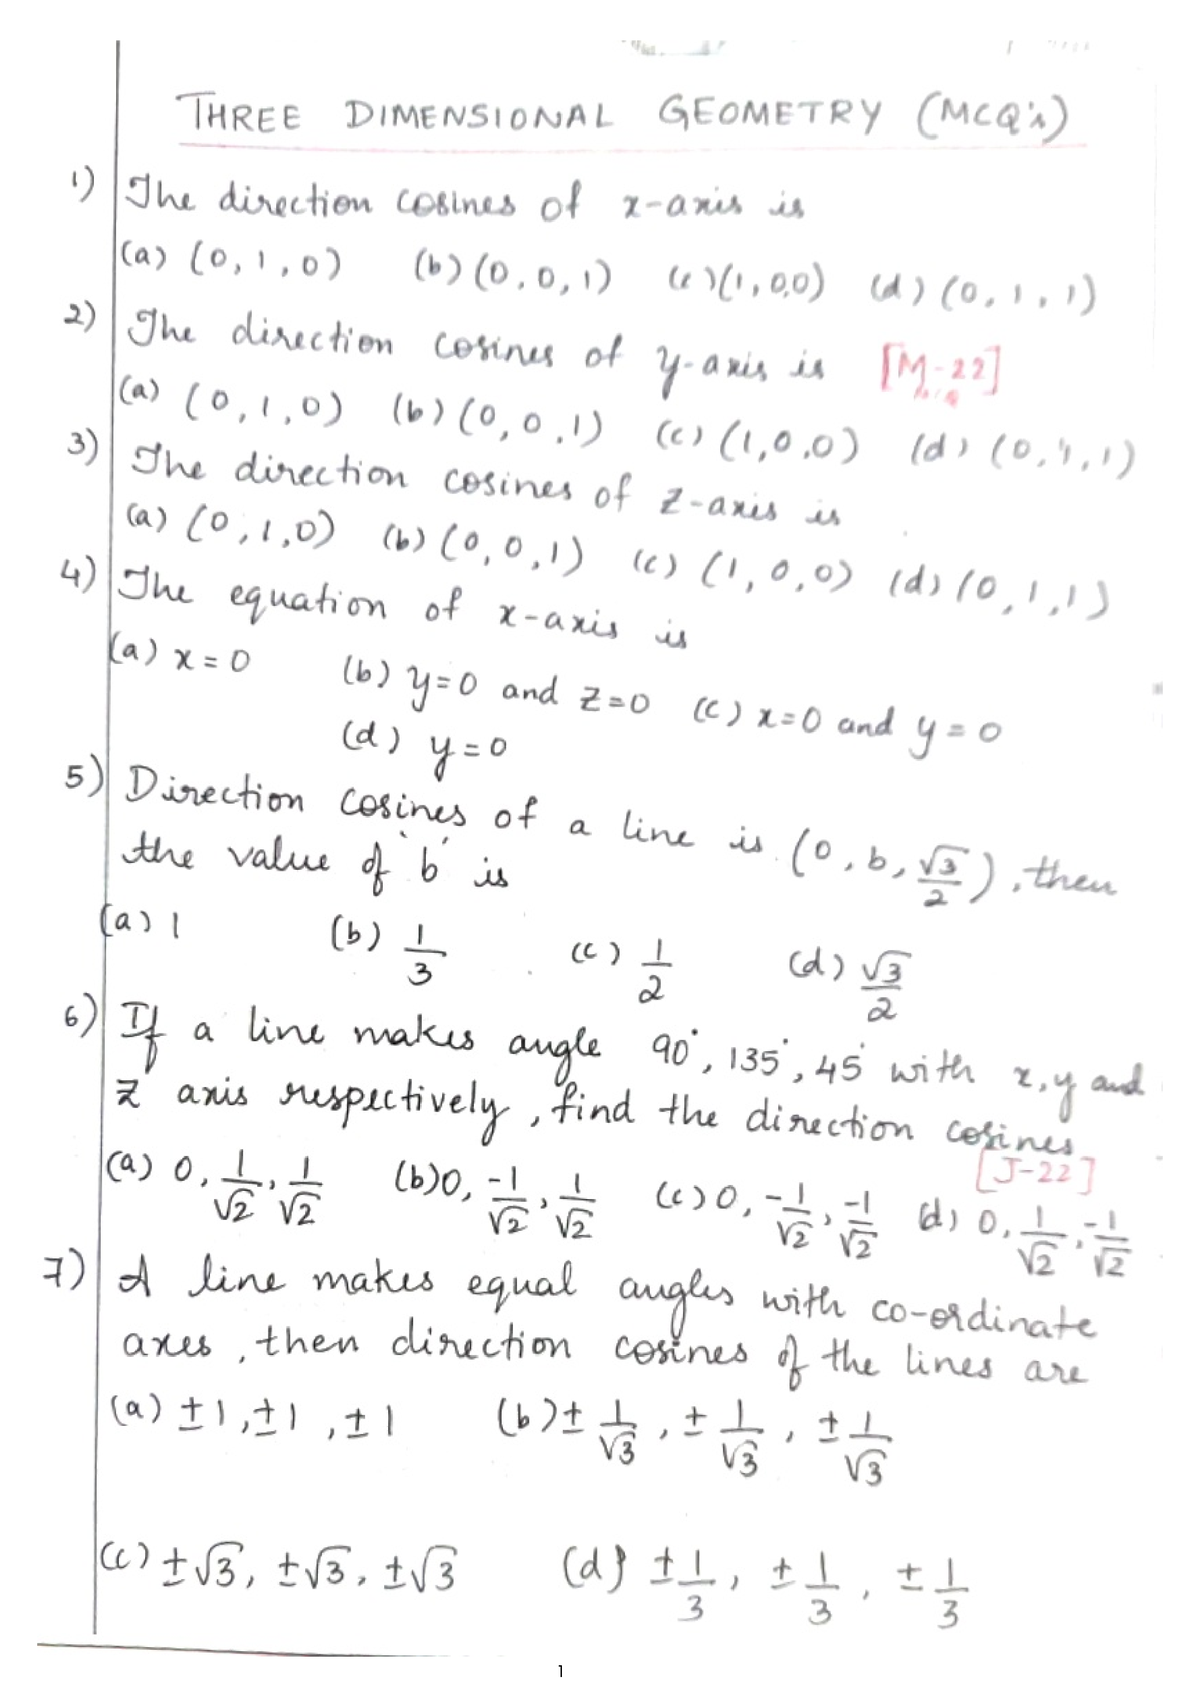 THREE DIMENSIONAL GEOMETRY (MCQ's)
1) The direction cosines of x-axis is
(a) (0,1,0) (b) (0,0,1) (c) (1,0,0) (d) (0,1,1)
2) The direction cosines of y-axis is [M-22]
(a) (0,1,0) (b) (0,0,1) (c) (1,0,0) (d) (0,1,1)
3) The direction cosines of z-axis is
(a) (0,1,0) (b) (0,0,1) (c) (1,0,0) (d) (0,1,1)
4) The equation of x-axis is
(a) x=0 (b) y=0 and z=0 (c) x=0 and y=0
(d) y=0
5) Direction cosines of a line is (0, b, √3/2), then
the value of 'b' is
(a) 1 (b) 1/3 (c) 1/2 (d) √3/2
6) If a line makes angle 90°, 135°, 45° with x, y and
z axis respectively, find the direction cosines
[J-22]
(a) 0, 1/√2, 1/√2 (b) 0, -1/√2, 1/√2 (c) 0, -1/√2, -1/√2 (d) 0, 1/√2, -1/√2
7) A line makes equal angles with co-ordinate
axes, then direction cosines of the lines are
(a) ±1, ±1, ±1 (b) ± 1/√3, ± 1/√3, ± 1/√3
(c) ±√3, ±√3, ±√3 (d) ± 1/3, ± 1/3, ± 1/3
1